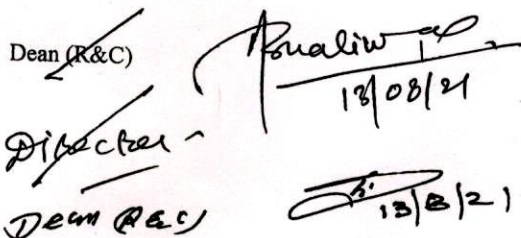 Dean (R&C)
13/08/21
Director -
Dean (R&C)
13/8/21